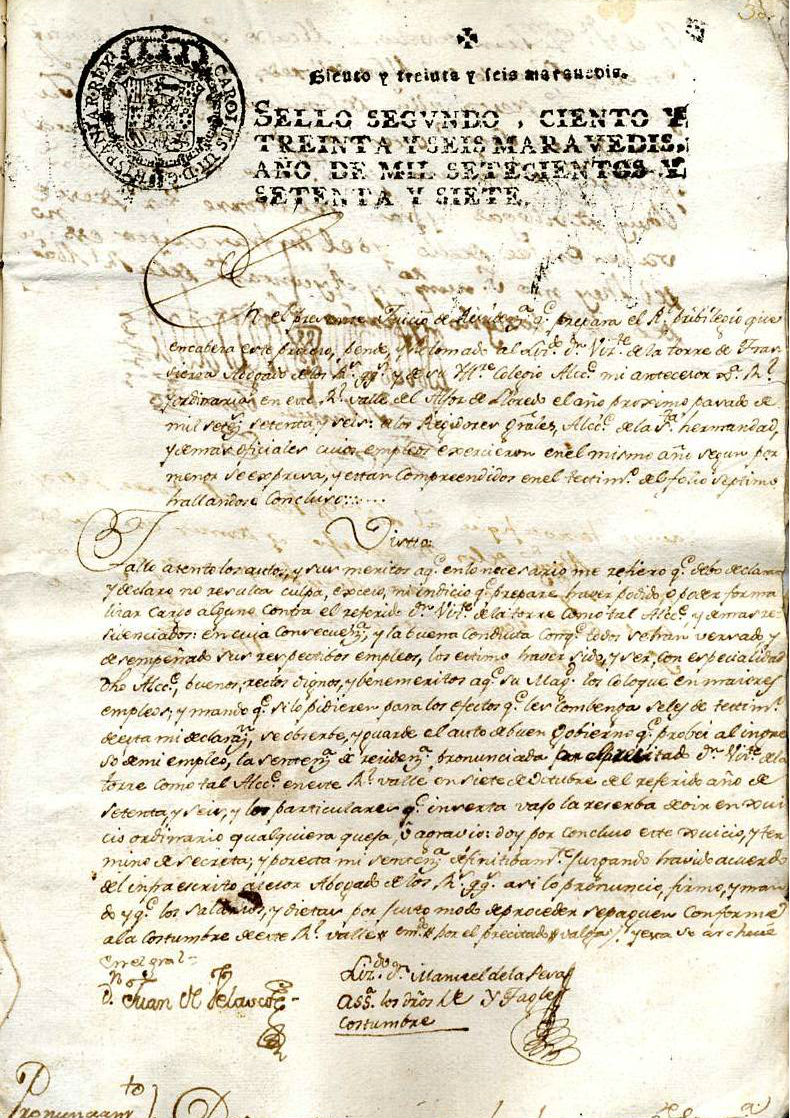 38.
CAROLUS III. D. G. HISPANIAR. REX
Ciento y treinta y seis maravedis.
SELLO SEGVNDO, CIENTO Y
TREINTA Y SEIS MARAVEDIS,
AÑO DE MIL SETECIENTOS Y
SETENTA Y SIETE.
En el presente Juicio de Resid.ª q.e prepara el R.l pribilegio que
encabeza este proceso, pende, y se ha tomado al Liz.do d.n Viz.te de la torre de Tras
sierra Abogado de los R.s y de su Yll.tre Colegio Alcc.e mi antecesor R.l
y ordinario en este R.l valle del Alfoz de Lloredo el año proximo pasado de
mil setez.s setenta, y seis: a los Regidores grâles, Alcc.e de la S.ta hermandad,
y demas oficiales cuios empleos exercieron en el mismo año segun por
menor se expresa, y estan compreendidos en el testim.o del folio septimo
hallandose Concluso:
Visto:
Fallo atento los autos, y sus meritos aq.e en lo necesario me refiero q.e debo declarar
y declaro no resulta culpa, exceso, ni indicio q.e prepare haver podido o poder forma
lizar Cargo alguno contra el referido d.n Viz.te de la torre como tal Alcc.e y demas re-
sidenciados: en cuia Consecuenz.ª, y la buena Conducta con q.e todos se han versado, y
desempeñado sus respectibos empleos, los estimo haver sido, y ser, con especialidad
dho Alcc.e, buenos, rectos dignos, y benemeritos aq.e su Mag.d los coloque en maiores
empleos; y mando q.e si lo pidieren para los efectos q.e les combenga se les de testim.o
de esta mi declaraz.n, se obserbe, y guarde el auto de buen Gobierno q.e probei al ingre
so de mi empleo, la sentenz.ª de residenz.ª pronunciada por el precitado d.n Viz.te de la
torre como tal Alcc.e en este R.l valle en siete de Octubre del referido año de
setenta, y seis, y los particulares q.e inserta vajo la reserba de oir en Juui
cio ordinario qualquiera queja, ô agravio: doy por concluso este Juuicio, y ter
mino de secreta; y por esta mi sentenz.ª definitibam.te juzgando havido acuerdo
del infraescrito asesor Abogado de los R.s asi lo pronuncio, firmo, y man
do y q.e los salarios, y dietas por justo modo de proceder se paguen Conforme
a la Costumbre de este R.l valle em.do por el precitado valga y esta se archive
en el gral
d.n Juan de Velasco
Liz.do d.n Manuel de la Peva
Ass.r los drôs de Y Tagle
costumbre
Pronunciam.to